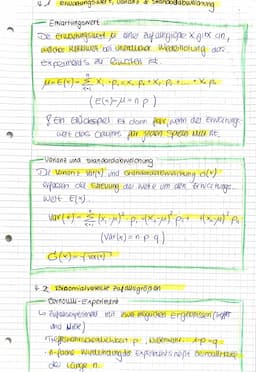 4.1 Erwartungswert, Varianz & Standardabweichung
Erwartungswert
Der Erwartungswert μ einer Zufallsgröße X gibt an,
welcher Mittelwert bei unendlicher Wiederholung des
Experiments zu erwarten ist.
μ = E(x) = Σ xᵢ · pᵢ = x₁ p₁ + x₂ p₂ + ... + xₙ pₙ
(E(x) = μ = n p)
Ein Glücksspiel ist dann fair, wenn der Erwartungs-
wert des Gewinns für jeden Spieler Null ist.
Varianz und Standardabweichung
Die Varianz Var(x) und Standardabweichung σ(x)
erfassen die Streuung der Werte um den Erwartungs-
wert E(x).
Var(x) = Σ (xᵢ-μ)² · pᵢ = (x₁-μ)² · p₁ + (xₙ-μ)² pₙ
(Var(x) = n p q)
σ(x) = √Var(x)
4.2 Binomialverteilte Zufallsgrößen
Bernoulli-Experiment
↳ Zufallsexperiment mit zwei möglichen Ergebnissen (Treffer
und Niete)
Trefferwahrscheinlichkeit p, 1-p = q
n-fache Wiederholung des Experiments heißt Bernoullikette
der Länge n.